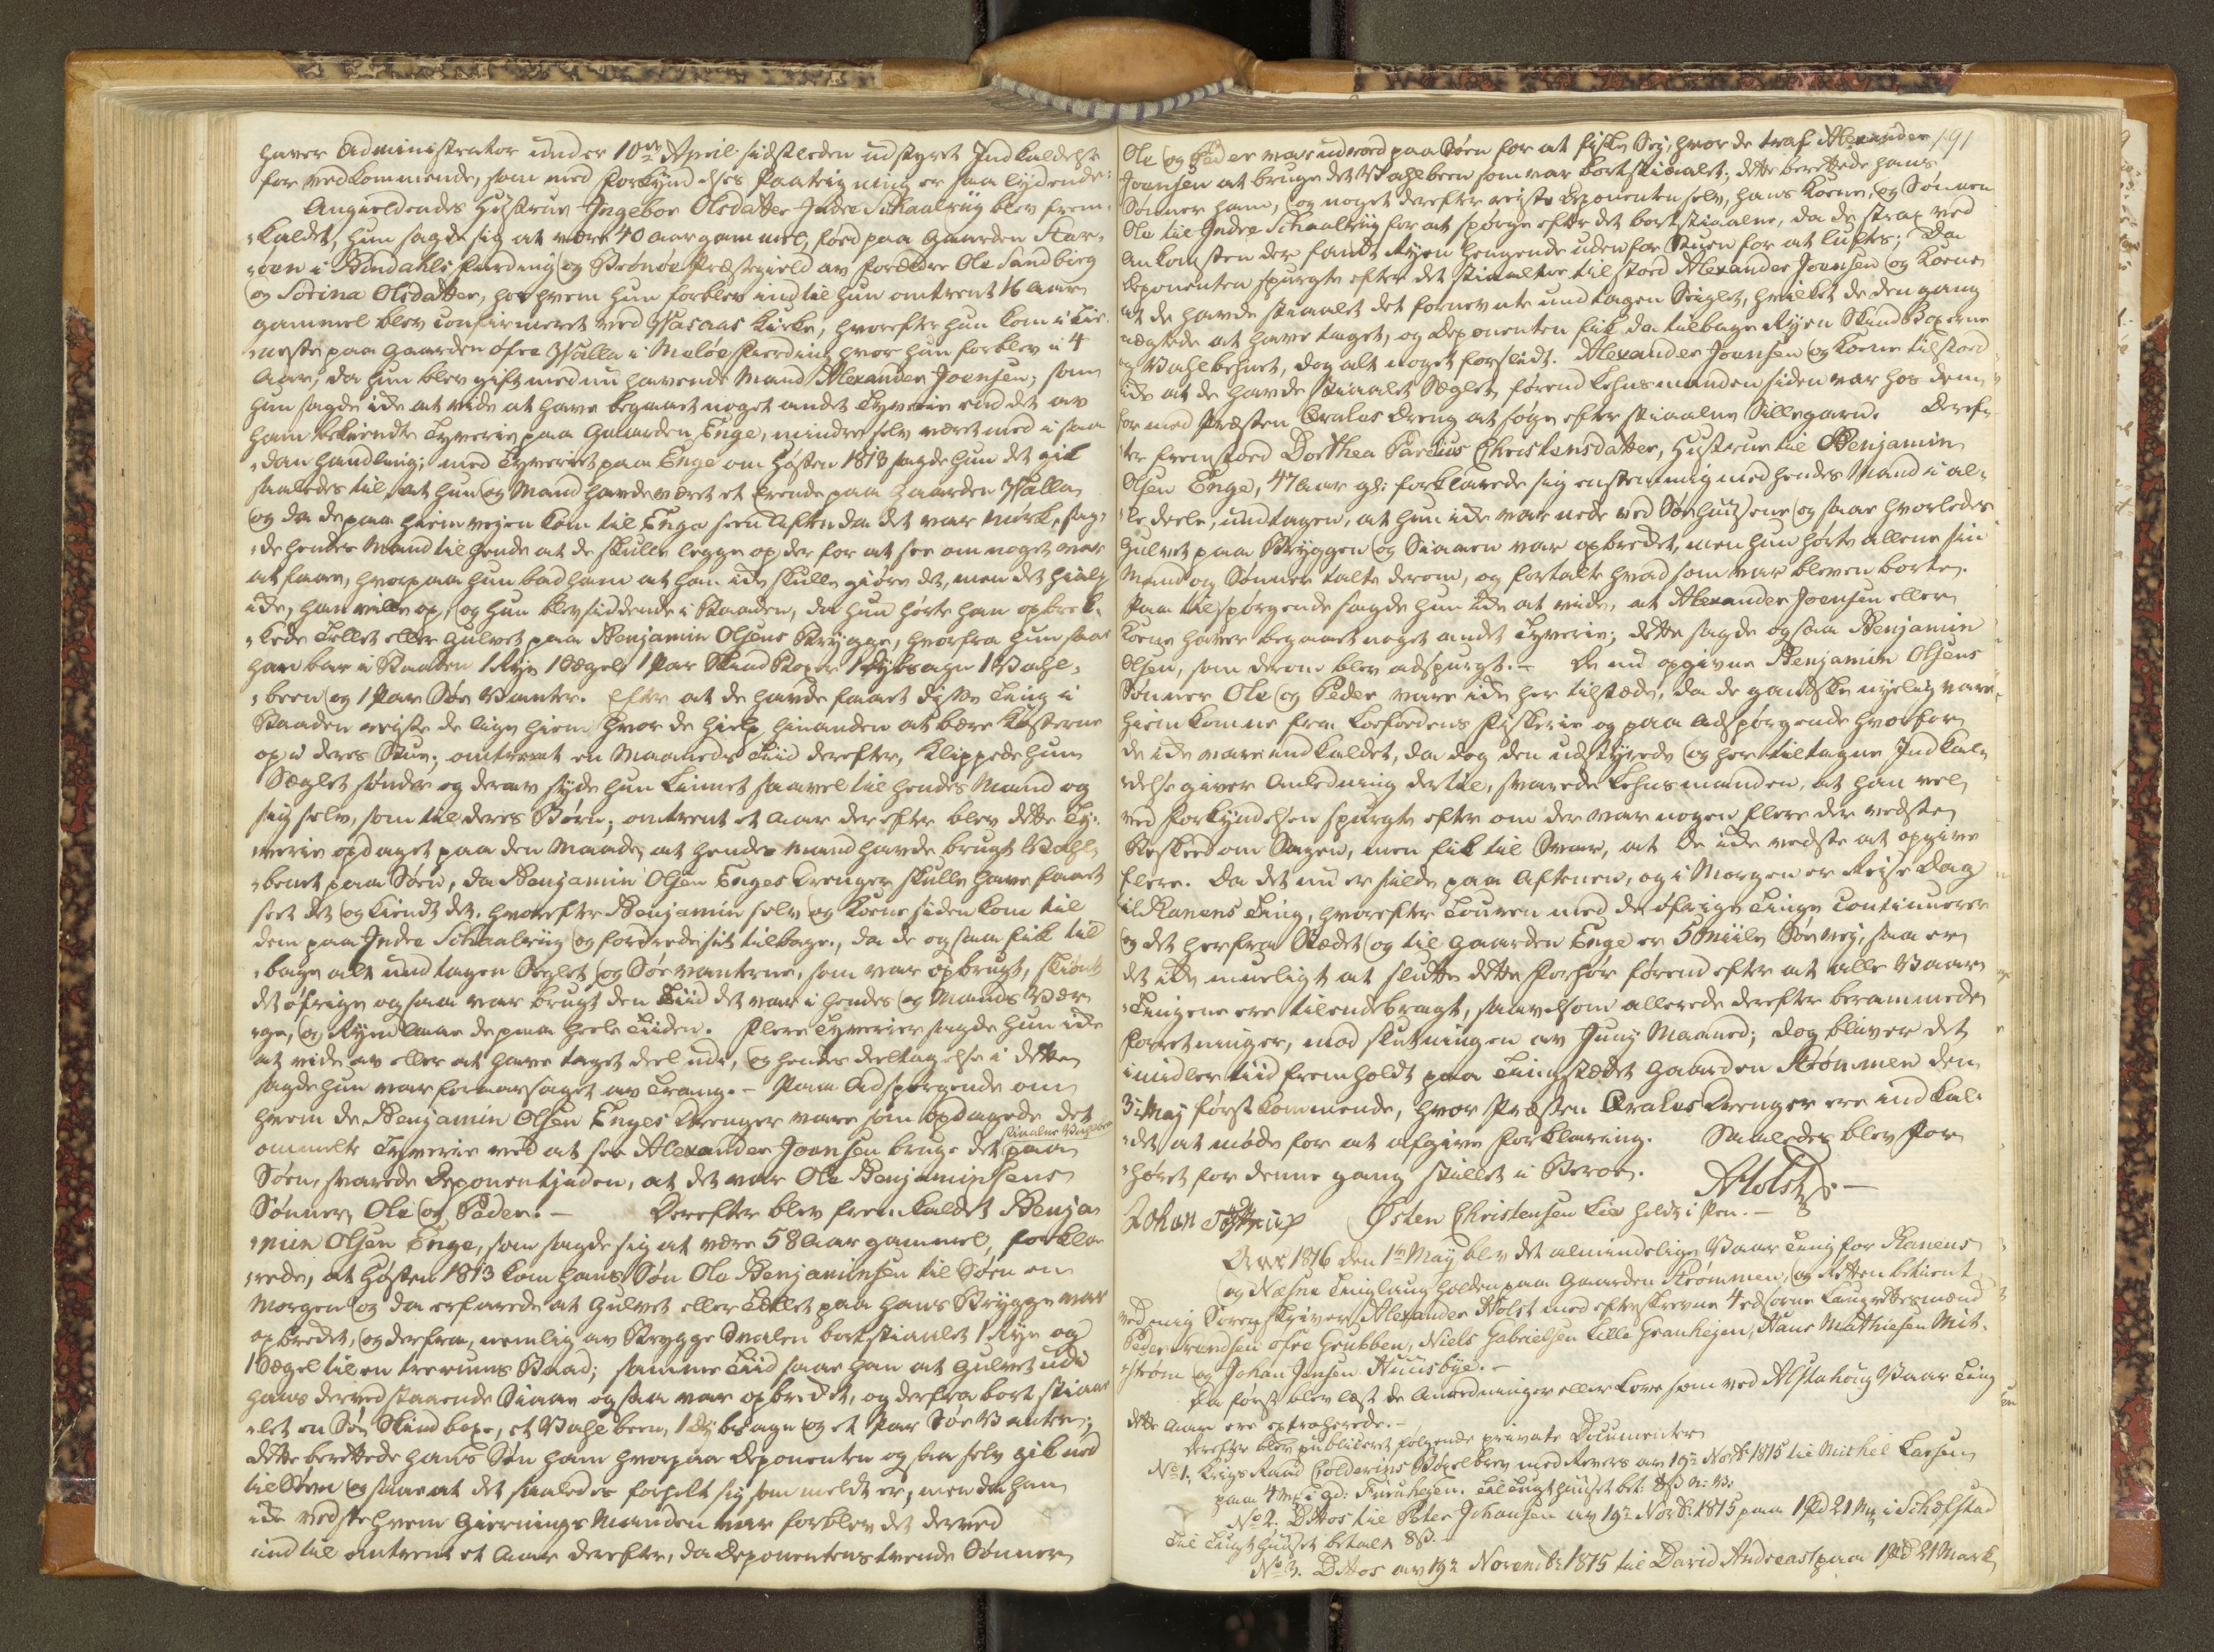 haver Administrator under 10de April sidstleden udstyret Indkaldelse
for vedkommende, som med Forkyndelses Paategning er saa lydende:
Angieldendes Hustrue Ingebor Olsdatter Indre Schaalviig blev frem-
kaldet, hun sagde sig at være 40 aar gammel, fød paa Gaarden Har-
røen i Bindahls Fierding og Brønøe Præstegield av Forældre Ole Sandbirg
og Sorina Olsdatter, hos hvem hun forblev indtil hun omtrent 16 Aar
gammel blev confirmeret ved Vasaas Kirke, hvorefter hun kom i Tie-
neste paa Gaarden øfre Valla i Meløe Fierding hvor hun forblev i 4
Aar, da hun blev gift med nu havende Mand Alexander Joensen, som
hun sagde ikke at vide at have begaaet noget andet Tyverie end det av
ham bekiendte Tyverie paa Gaarden Enge, mindre selv været med i saa-
dan Handling; med Tyveriet paa Enge om Høsten 1813 sagde hun det gik
saaledes til, at hun og Mand havde været et Erende paa Gaarden Valla
og da de paa Hiemveyen kom til Enge seen Aften da det var mørk, sag-
de hendes Mand til hende at de skulle legge op der for at see om noget var
at faae, hvorpaa hun bad ham at han ikke skulle giøre det, men det hialp
ikke, han ville op, og hun blev siddende i Baaden, da hun hørte han opbrek-
kede Tellet eller Gulvet paa Benjamin Olsens Brygge, hvorfra hun saae
han bar i Baaden 1 Rye 1 Sægel 1 Par Skind Boxer 1 Dybsagn 1 Vahl-
been og 1 Par Søe Vanter. Efter at de havde faaet disse Ting i
Baaden reiste de lige hiem hvor de hialp hinanden at bære Kosterne
op i deres Stue; omtrent en Maaneds Tiid derefter, klippede hun
Sæglet sønder og derav syede hun Linnet saavel til hendes Mand og
sig selv, som til deres Børn; omtrent et Aar derefter blev dette Ty-
verie opdaget paa den Maade, at hendes Mand havde brugt Vahl-
beenet paa Søen, da Benjamin Olsen Enges Drenger skulle have faaet
seet det og kiendt det, hvorefter Benjamin selv og Kone siden kom til
dem paa Indre Schaalviig og fordrede sit tilbage, da de ogsaa fik til-
bage alt undtagen Seglet og Søevanterne, som var opbrugt, skiønt
det øfrige ogsaa var brugt den Tiid det var i hendes og Mands Vær-
ge, og Ryen laae de paa heele Tiiden. Flere Tyverier sagde hun ikke
at vide av eller at have taget deel udi, og hendes deeltagelse i dette
sagde hun var foraarsaget av Trang. – Paa Adspørgende om
hvem de Benjamin Olsen Enges Drenger vare som opdagede det
ommelte Tyverie ved at see Alexander Joensen bruge det stiaalne Vahlbeen paa
Søen, svarede Deponentinden, at det var Ole Benjaminsens
Sønner, Ole og Peder. – Derefter blev fremkaldet Benja-
min Olsen Enge, som sagde sig at være 58 Aar gammel, forkla-
rede, at Høsten 1813 kom hans Søn Ole Benjaminsen til Søen en
Morgen og da erfarede at Gulvet eller Tellet paa hans Brygge var
opbredet, og derfra, nemlig av Brygge Svalen bortstiaalet 1 Rye og
1 Sægel til en treerums Baad; samme Tiid saae han at Gulvet udi
hans derved staaende Siaae ogsaa var opbredet, og derfra bortstiaa-
let en Søe Skindboxe, et Vahlbeen, 1 dybsagn og et Par Søe Vanter;
dette berettede hans Søn ham hvorpaa Deponenten ogsaa selv gik ned
til Søen og saae at det saaledes forholt sig som meldt er, men da han
ikke vedste hvem Gierningsmanden var forblev det derved
indtil omtrent et Aar derefter, da Deponentens tvende Sønner
Ole og Peder var udroed paa Søen for at fiske Sey, hvor de traf Alexander 191
Joensen at bruge det Vahlbeen som var bortstiaalet; dette berettede hans
Sønner ham, og noget derefter reiste Deponenten selv, hans Koene, og Sønnen
Ole til Indre Schaalviig for at spørge efter det bortstiaalne, da de strax ved
Ankomsten der fandt Ryen hengende udenfor Stuen for at lufte; Da
Deponenten spurgte efter det stiaalne tilstoed Alexander Joensen og Koene
at de havde stiaalet det fornevnte undtagen Seiglet, hvilket de den gang
nægtede at have taget, og Deponenten fik da tilbage Ryen Skindboxerne
og Vahlbehnet, dog alt noget forslidt. Alexander Joensen og Koene tilstoed
ikke at de havde stiaalet Sæglet, førend Lehnsmanden siden var hos dem
her med Præsten Qvales Dreng at søge efter stiaalne Sillegarn. Deref-
ter fremstoed Dorthea Parelius Christensdatter, Hustrue til Benjamin
Olsen Enge, 47 Aar gl: forklarede sig enstemmig med hendes Mand i al-
le deele, undtagen, at hun ikke var nede ved Søehuusene og saae hvorledes
Gulvet paa Bryggen og Siaaen var opbredet, men hun hørte allene sin
Mand og Sønner talte derom, og fortalte hvad som var bleven borte.
Paa tilspørgende sagde hun ikke at vide, at Alexander Joensen eller
Koene haver begaaet noget andet Tyverie; dette sagde ogsaa Benjamin
Olsen, som derom blev adspurgt. – De nu opgivne Benjamin Olsens
Sønner Ole og Peder vare ikke her tilstæde, da de gandske nyelig vare
hiemkomne fra Lofoedens Fiskerie og paa Adspørgende hvorfor
de ikke vare indkaldet, da dog den udstyrede og her tiltagne Indkal-
delse giver Anledning dertil, svarede Lehnsmanden, at han vel
ved Forkyndelsen spurgte efter om der var nogen flere der vedste
Beskeed om Sagen, men fik til Svar, at de ikke vedste at opgive
flere. Da det nu er silde paa Aftenen, og i Morgen er Reise Dag
til Ranens Ting, hvorefter Touren med de øfrige Tinge continuerer
og det herfra Stædet og til Gaarden Enge er 5 Miile Søevej, saa er
det ikke mueligt at slutte dette Forhør førend efter at alle Vaar-
Tingene ere tilendebragt, saavelsom allerede derefter berammede
Forretninger, mod Slutningen av Juny Maaned; dog bliver det
imidlertiid fremholdt paa Tingstædet Gaarden Strømmen den
3die May førstkommende, hvor Præsten Qvales Drenger ere indkal-
det at møde for at afgive Forklaring. Saaledes blev For-
høret for denne gang stillet i Beroe. AHolst
Johan Østen Christensen Lie holdt i Pen. –
Aar 1816 den 1te May blev det almindelige Vaar Ting for Ranens
og Næsne Tinglaug holden paa Gaarden Strømmen, og Retten betient
ved mig Sorenskriver Alexander Holst med efterskrevne 4 edsorne Laugrettesmænd
Peder øfre Grubben, Niels Gabrielsen Lille Granheien, Hans Mathiesen Mit-
strøm og Johan Jensen Huusbye. –
Da først blev læst de Anordninger eller Love som ved Alstahoug Vaar Ting
dette Aar ere extraherede. –
Derefter blev publiceret følgende private Documenter
No 1. Krigs Raad Coldevins Bøxelbrev med Revers av 19de Novb: 1815 til Michel Larsen
paa 4 mk i Gd: Furuheien. Til Tugthuuset bet: 8s N: V:
No 2. Dittos til Peter Johansen av 19de Novb: 1815 paa 1 Pd 21 mk i Schelstad
Til Tugthuuset betalt 8s. –
No 3. Dittos av 19de Novembr 1815 til David Andreas paa 1 Pd 21 Mark